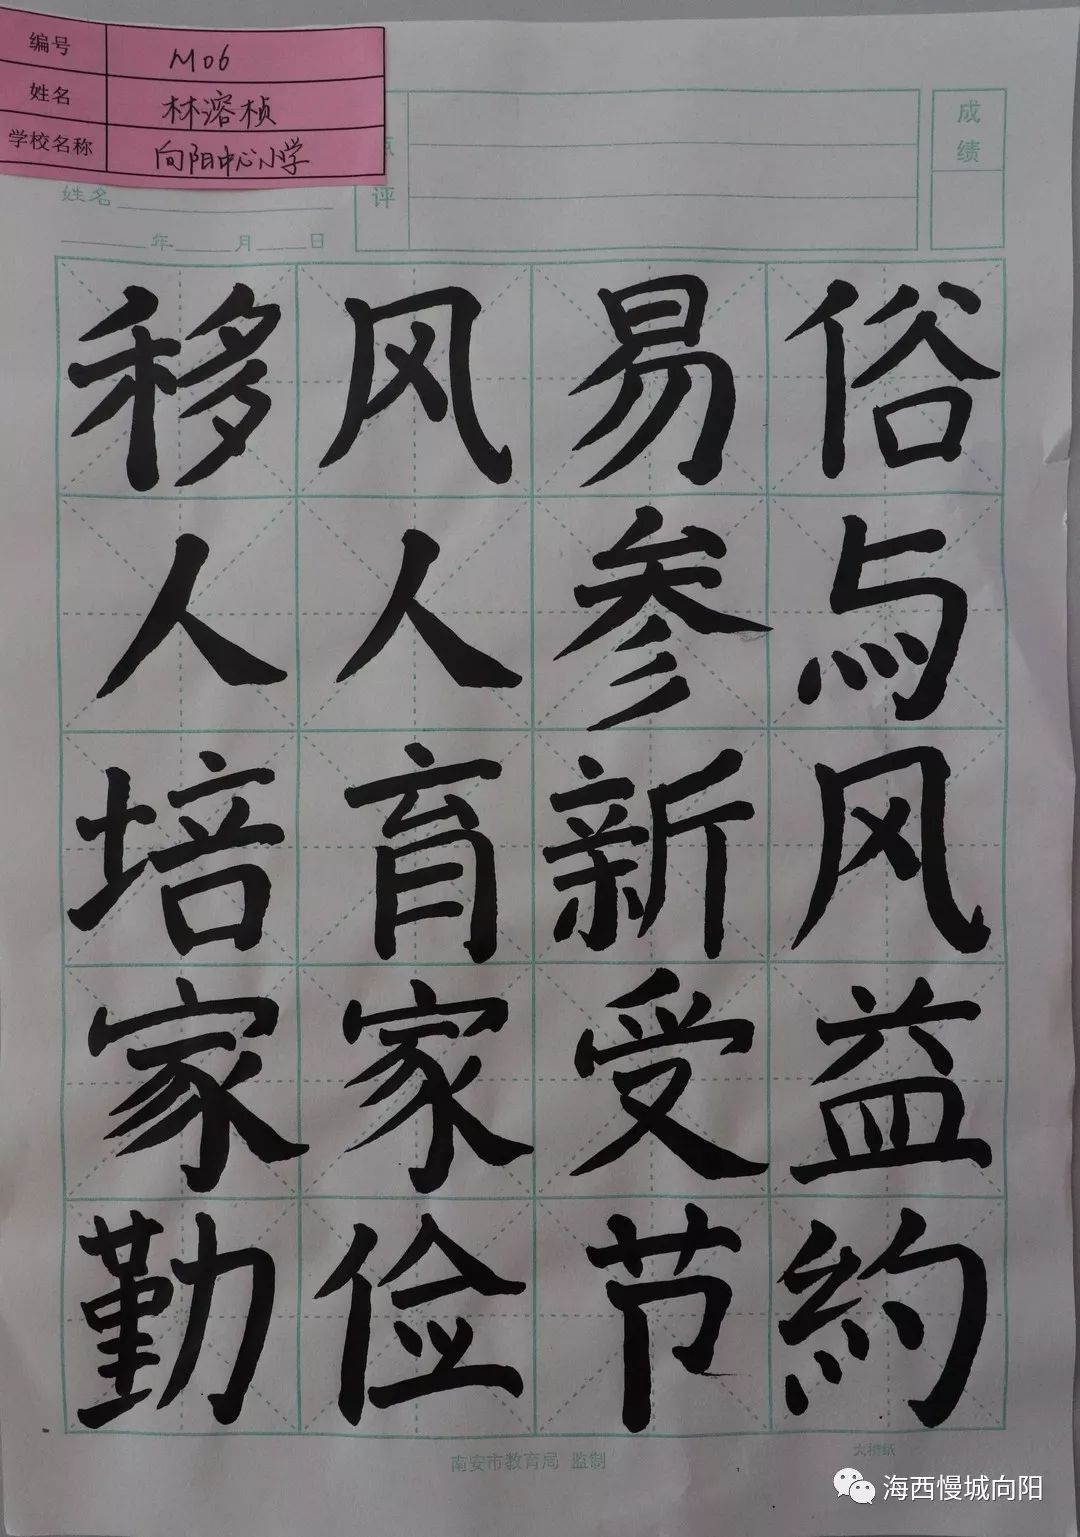 编号 M06
姓名 林溶桢
学校名称 向阳中心小学
评
成绩
姓名
年 月 日
移风易俗
人人参与
培育新风
家家受益
勤俭节約
南安市教育局 监制
海西慢城向阳